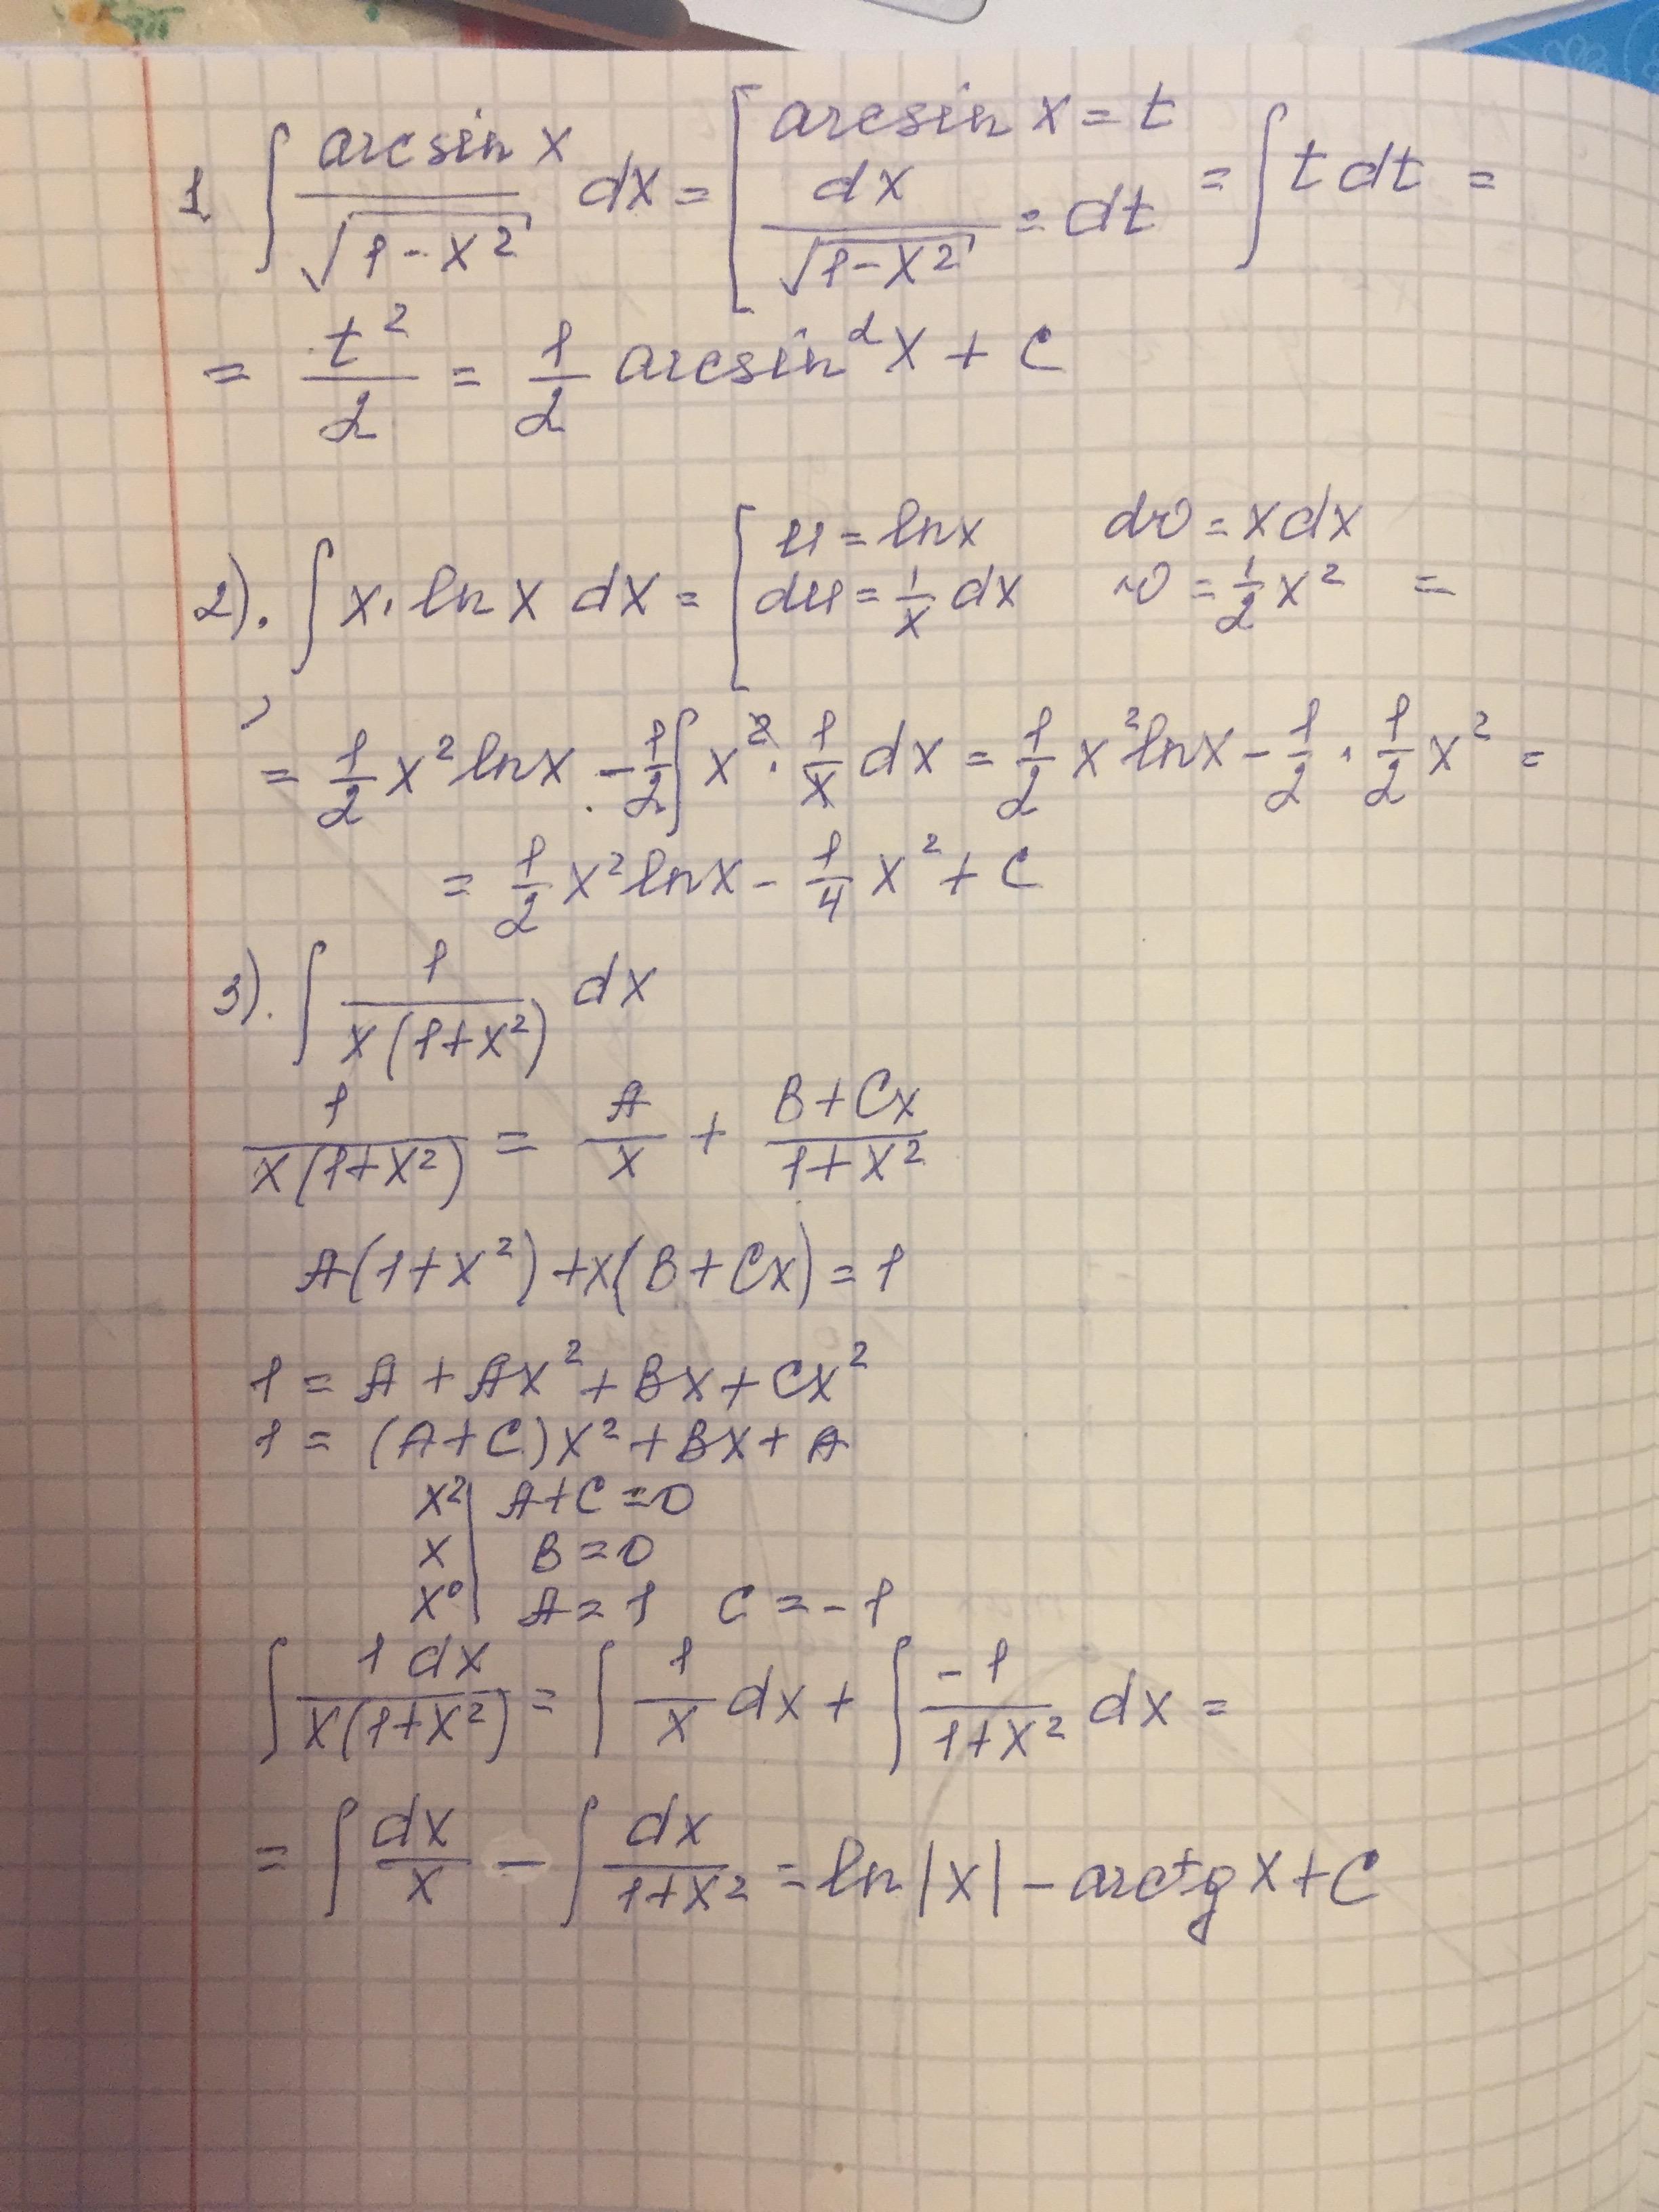 1. ∫ arcsin x / √(1-x²) dx = [ arcsin x = t   dx / √(1-x²) = dt = ∫ t dt =
= t²/2 = 1/2 arcsin² x + C
2). ∫ x · ln x dx = [ u = ln x   dv = x dx   du = 1/x dx   v = 1/2 x² =
= 1/2 x² ln x - 1/2 ∫ x² · 1/x dx = 1/2 x² ln x - 1/2 · 1/2 x² =
= 1/2 x² ln x - 1/4 x² + C
3). ∫ 1 / x(1+x²) dx
1 / x(1+x²) = A/x + (B+Cx) / (1+x²)
A(1+x²) + x(B+Cx) = 1
1 = A + Ax² + Bx + Cx²
1 = (A+C)x² + Bx + A
x² | A+C = 0
x | B = 0
x⁰ | A = 1   C = -1
∫ 1 dx / x(1+x²) = ∫ 1/x dx + ∫ -1 / (1+x²) dx =
= ∫ dx/x - ∫ dx / (1+x²) = ln|x| - arctg x + C